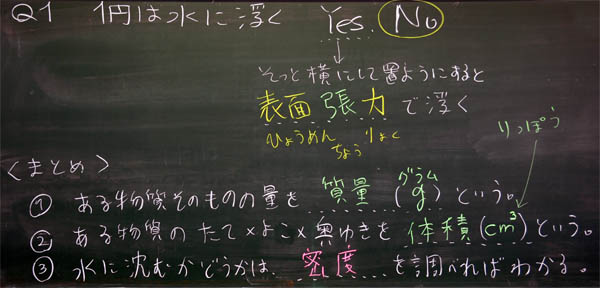 Q1 1円は水に浮く Yes. No
そっと横にして置ようにすると
表面張力で浮く
ひょうめん ちょう りょく
りっぽう
<まとめ>
グラム
① ある物質そのものの量を 質量(g)という。
② ある物質の たて×よこ×奥ゆきを 体積(cm³)という。
③ 水に沈むかどうかは、密度を調べればわかる。